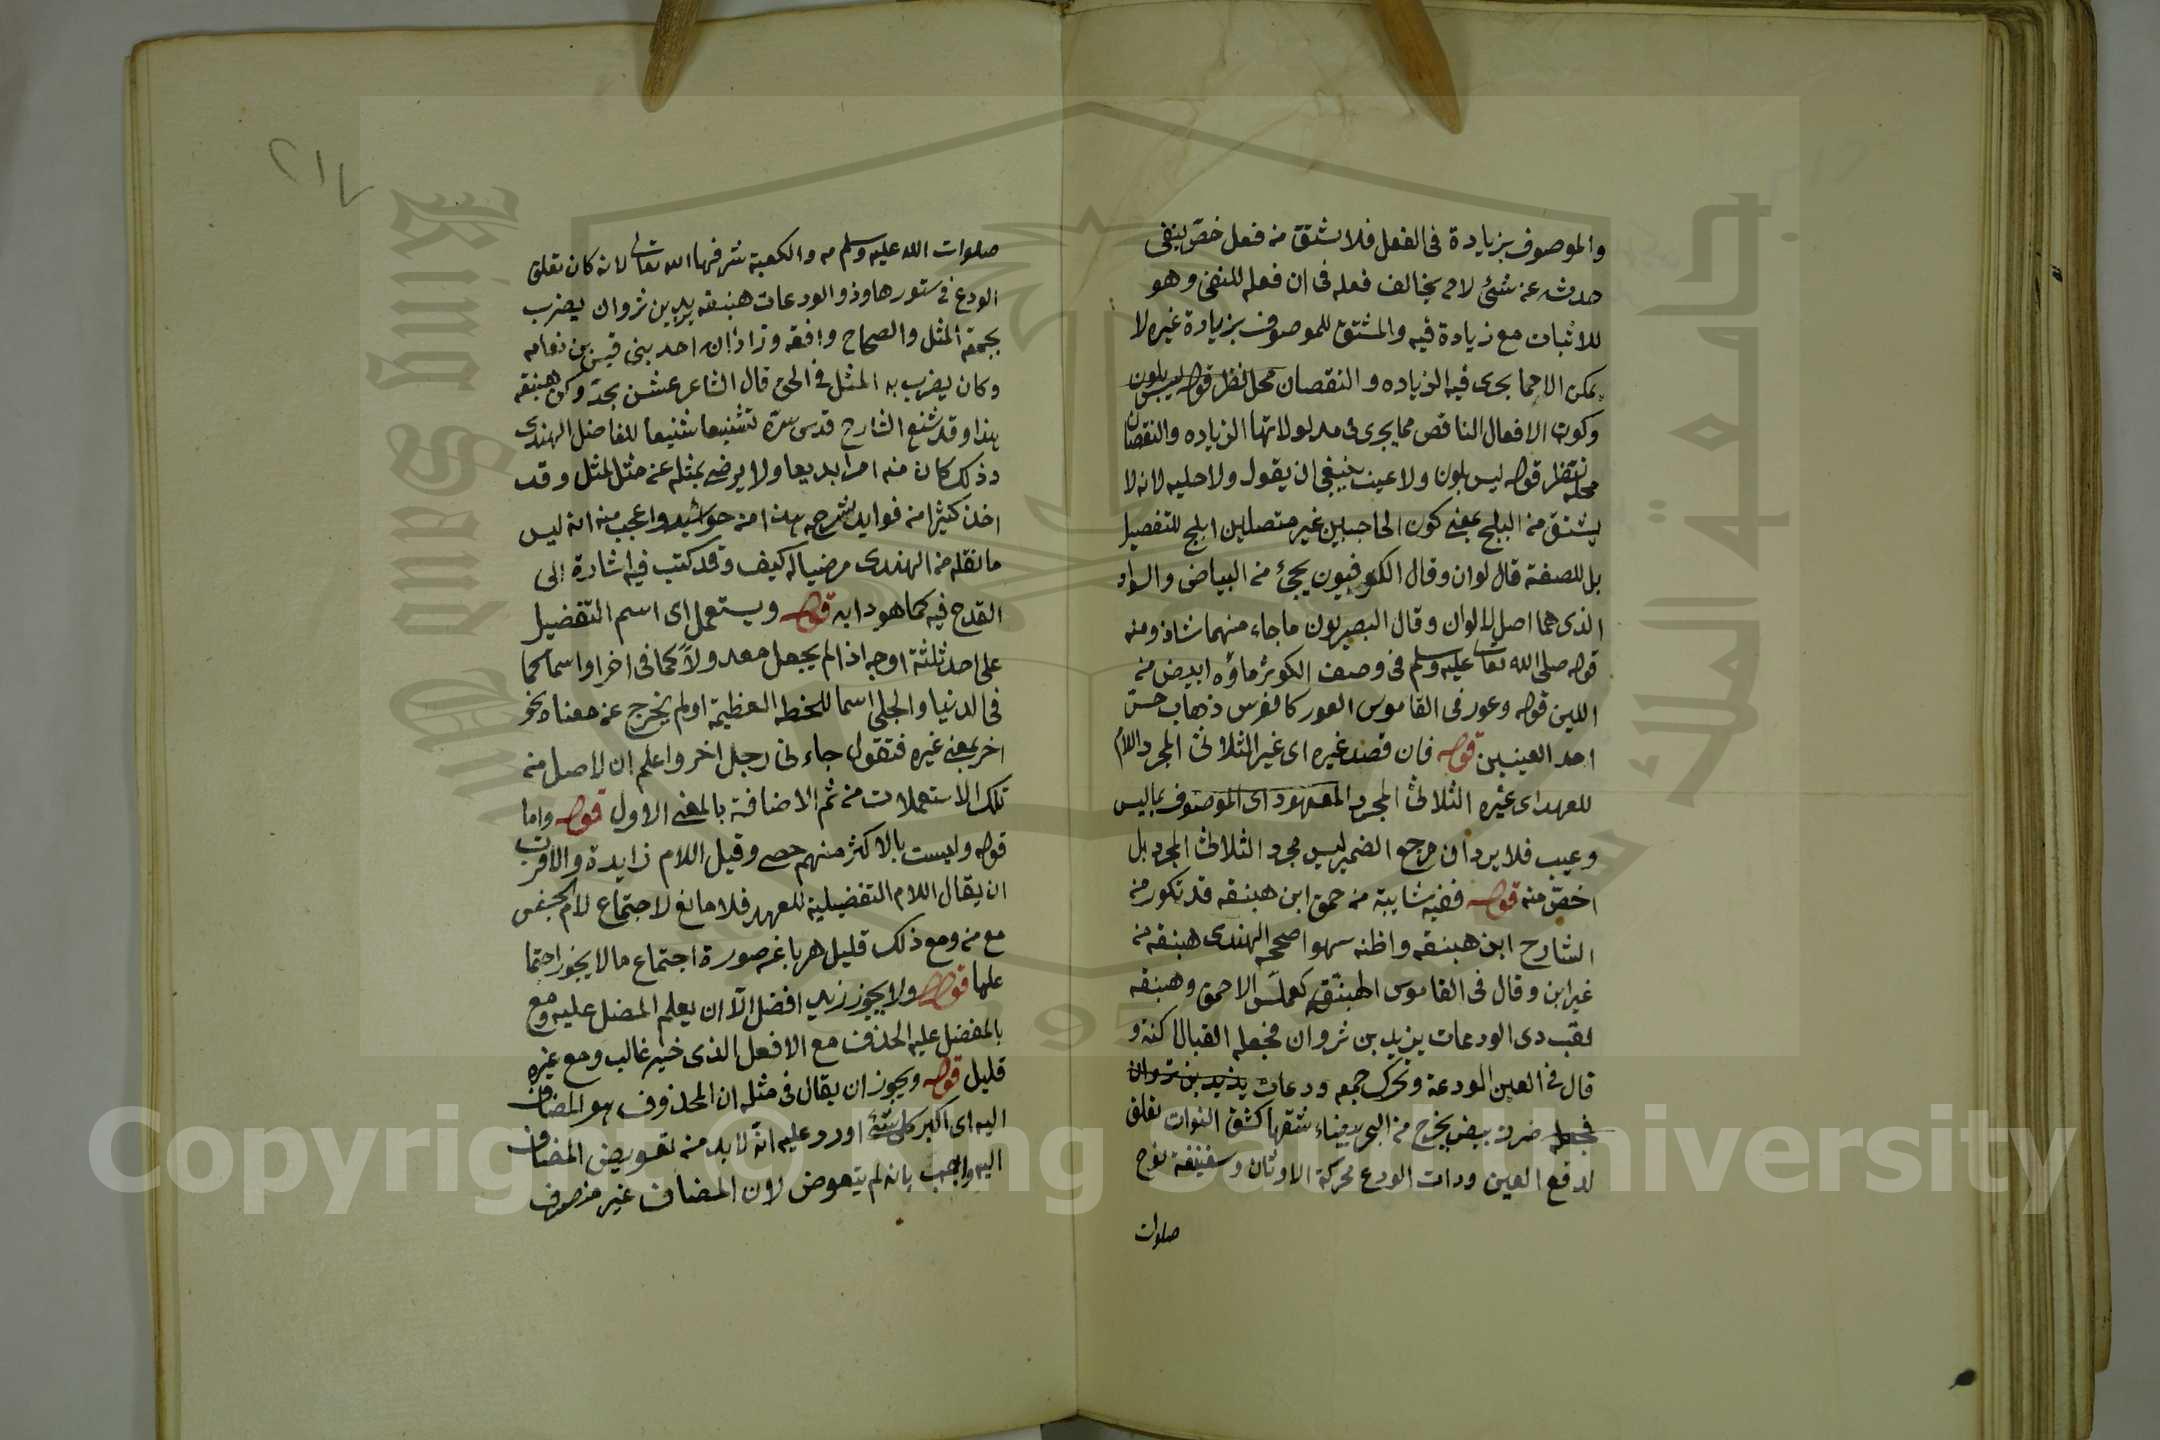 والموصوف بزيادة فى الفعل فلا شتق من فعل خصّ بنفى
حدثه عن شئ لا يخالف فعله فى ان فعله للنفى وهو
للاثبات مع زيادة فيه والمشتق للموصوف بزيادة غيره لا
يمكن الا مما يجرى فيه الزياده والنقصان محل نظر قوله ليس بلون
وكون الافعال الناقص مما يجرى فى مدلولاتها الزياده والنقصان
محله نظر قوله ليس بلون ولا عيب ينبغى ان يقول ولا حليه لانه لا
يشتق من البلج بمعنى كون الحاجبين غير متصلين ابلج للتفصيل
بل للصفة قال لوان وقال الكوفيون يجئ من البياض والسواد
الذى هما اصل الالوان وقال البصريون ما جاء منهما شاذ ومنه
قوله صلى الله تعالى عليه وسلم فى وصف الكوثر ماؤه ابيض من
اللبن قوله وعور فى القاموس العور كالفرس ذهاب حسّ
احد العينين قوله فان قصد غيره اى غير الثلاثى المجرد اللام
للعهد اى غيره الثلاثى المجرد المعهود اى الموصوف بما ليس
وعيب فلا يرد ان مرجع الضمير ليس مجرد الثلاثى المجرد بل
اخصّ منه قوله ففيه شايبة من حمق ابن هبنقه قد تكور من
الشارح ابن هبنقه واظنه سهوا صححه الهندى هبنقه من
غير ابن وقال فى القاموس الهبنّق كعملّس الاحمق وهبنقه
لقب ذى الودعات يزيد بن ثروان فجعله القبالا كنة و
قال فى العين الودعة وتحرك جمعه ودعات يذيد بن ثروان
فجعله ضرب بيض يخرج من البحر بيضاء شقها كشق النوات تعلق
لدفع العين ودات الودع محركة الاوثان وسفينة نوح
صلوات
٢١٧
صلوات الله عليه وسلم والكعبة شرفها الله تعالى لانه كان تعلق
الودع فى ستورها وذو الودعات هبنقه يزيد بن ثروان يضرب
بحمقه المثل والصحاح وافقه وزاد ان احد بنى قيس بن
وكان يضرب به المثل فى الحق قال الشاعر عشن بجدّ وكن هبنقه
هذا وقد شنع الشارح قدس سرّه تشنيعا شنيعا للفاضل الهندى
وذلك كان منه امرا بديعا ولا يرضى بمثله عن مثل المثل وقد
اخذ كثيرا من فوايد شرحه هذا من حواشيه واعجب منه انه ليس
ما نقله من الهندى مرضيا له كيف وقد كتب فيه اشارة الى
القدح فيه كما هو دابه قوله ويستعمل اى اسم التفضيل
على احد ثلثة اوجه اذا لم يجعل معدولاً كما فى اخر او اسما كما
فى الدنيا والجلى اسما للخطه العظيمة او لم يخرج عن معناه نحو
اخر بمعنى غيره فتقول جاءنى رجل اخر واعلم ان الاصل منه
تلك الاستعملات من ثم الاضافة بالمعنى الاول قوله واما
قوله وليست بالاكثر منهم حصى وقيل اللام زايدة والاقرب
ان يقال اللام التفضيلية للعهد فلا مانع لاجتماع لام الجنس
مع من ومع ذلك قليل هربا عن صورة اجتماع ما لا يجوز اجتما
عهما قوله ولا يجوز زيد افضل الّا ان يعلم المفضل عليه ومع
بالمفضل عليه الحذف مع الافعل الذى خبر غالب ومع غيره
قليل قوله ويجوز ان يقال فى مثله ان المحذوف هو المضاف
اليه اى اكبر كل شئ اورد عليه انه لا بد منه تعويض المضاف
اليه واجيب بانه لم يتعوض لان المضاف غير منصرف
Copyright © King Saud University
King Saud University
جامعة الملك سعود
1957